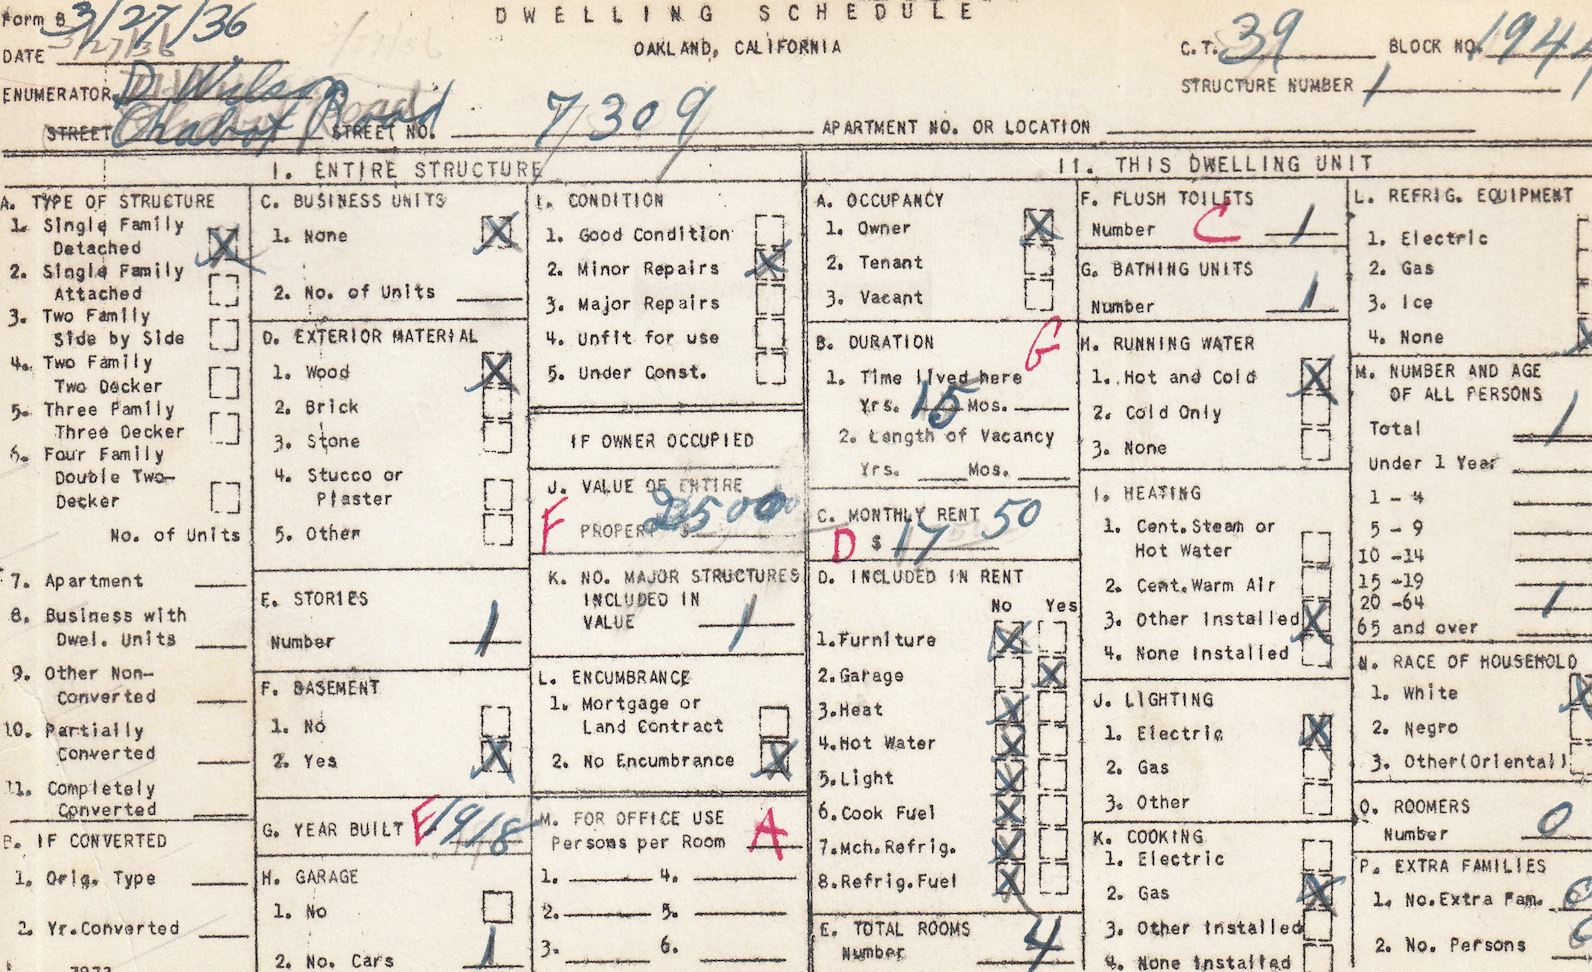 DWELLING SCHEDULE
Form B 3/27/36
OAKLAND, CALIFORNIA
C.T. 39 BLOCK NO. 194
DATE 3/27/36
STRUCTURE NUMBER 1
ENUMERATOR D. Wilson
STREET Chabot Road STREET NO. 7309 APARTMENT NO. OR LOCATION
I. ENTIRE STRUCTURE
A. TYPE OF STRUCTURE
1. Single Family
Detached X
2. Single Family
Attached
3. Two Family
Side by Side
4. Two Family
Two Decker
5. Three Family
Three Decker
6. Four Family
Double Two-
Decker
No. of Units
7. Apartment
8. Business with
Dwel. Units
9. Other Non-
Converted
10. Partially
Converted
11. Completely
Converted
B. IF CONVERTED
1. Orig. Type
2. Yr. Converted
C. BUSINESS UNITS
1. None X
2. No. of Units
D. EXTERIOR MATERIAL
1. Wood X
2. Brick
3. Stone
4. Stucco or
Plaster
5. Other
E. STORIES
Number 1
F. BASEMENT
1. No
2. Yes X
G. YEAR BUILT E 1918
H. GARAGE
1. No
2. No. Cars 1
I. CONDITION
1. Good Condition
2. Minor Repairs X
3. Major Repairs
4. Unfit for use
5. Under Const.
IF OWNER OCCUPIED
J. VALUE OF ENTIRE
F PROPERTY $ 2500
K. NO. MAJOR STRUCTURES
INCLUDED IN
VALUE 1
L. ENCUMBRANCE
1. Mortgage or
Land Contract
2. No Encumbrance X
M. FOR OFFICE USE
Persons per Room A
1. 4.
2. 5.
3. 6.
II. THIS DWELLING UNIT
A. OCCUPANCY
1. Owner X
2. Tenant
3. Vacant
B. DURATION G
1. Time lived here
Yrs. 15 Mos.
2. Length of Vacancy
Yrs. Mos.
C. MONTHLY RENT
D $ 17 50
D. INCLUDED IN RENT
No Yes
1. Furniture X
2. Garage X
3. Heat X
4. Hot Water X
5. Light X
6. Cook Fuel X
7. Mch. Refrig. X
8. Refrig. Fuel X
E. TOTAL ROOMS
Number 4
F. FLUSH TOILETS
Number C 1
G. BATHING UNITS
Number 1
H. RUNNING WATER
1. Hot and Cold X
2. Cold Only
3. None
I. HEATING
1. Cent. Steam or
Hot Water
2. Cent. Warm Air
3. Other Installed X
4. None Installed
J. LIGHTING
1. Electric X
2. Gas
3. Other
K. COOKING
1. Electric
2. Gas X
3. Other Installed
4. None Installed
L. REFRIG. EQUIPMENT
1. Electric
2. Gas
3. Ice
4. None X
M. NUMBER AND AGE
OF ALL PERSONS
Total 1
Under 1 Year
1 - 4
5 - 9
10 -14
15 -19
20 -64 1
65 and over
N. RACE OF HOUSEHOLD
1. White X
2. Negro
3. Other (Oriental)
O. ROOMERS
Number 0
P. EXTRA FAMILIES
1. No. Extra Fam. 0
2. No. Persons